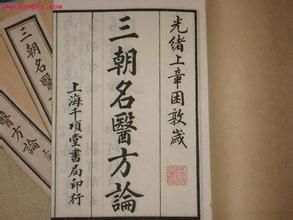 光緒上章困敦歲
三朝名醫方論
上海千頃堂書局印行
三朝名
醫方論